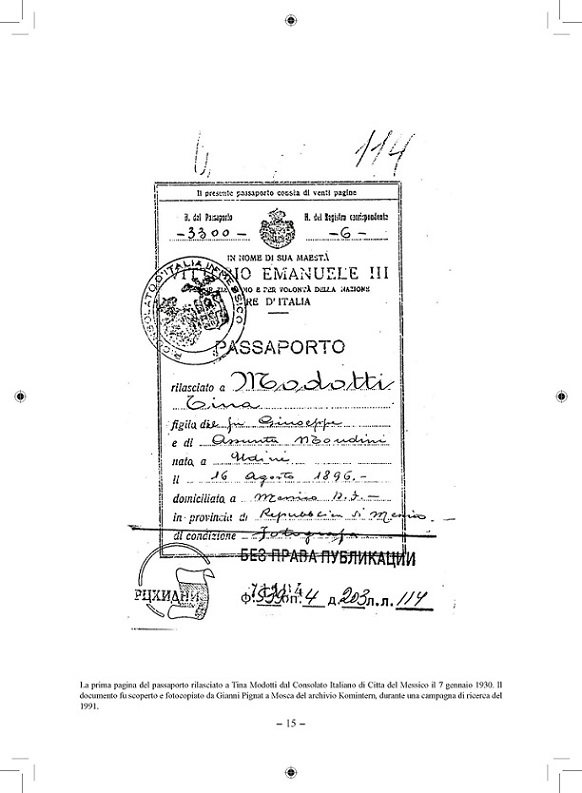 114
Il presente passaporto consta di venti pagine
N. del Passaporto
N. del Registro corrispondente
-3300-
-6-
IN NOME DI SUA MAESTÀ
VITTORIO EMANUELE III
PER GRAZIA DI DIO E PER VOLONTÀ DELLA NAZIONE
RE D'ITALIA
R. CONSOLATO D'ITALIA IN MESSICO
PASSAPORTO
rilasciato a Modotti
Tina
figlia del fu Giuseppe
e di Assunta Mondini
nata a Udine
il 16 Agosto 1896.-
domiciliata a Messico D.F.-
in provincia di Repubblica di Messico
di condizione Fotografa
БЕЗ ПРАВА ПУБЛИКАЦИИ
РЦХИДНИ
Ф. оп. 4 д. 203 л.л. 114
La prima pagina del passaporto rilasciato a Tina Modotti dal Consolato Italiano di Citta del Messico il 7 gennaio 1930. Il
documento fu scoperto e fotocopiato da Gianni Pignat a Mosca del archivio Komintern, durante una campagna di ricerca del
1991.
– 15 –